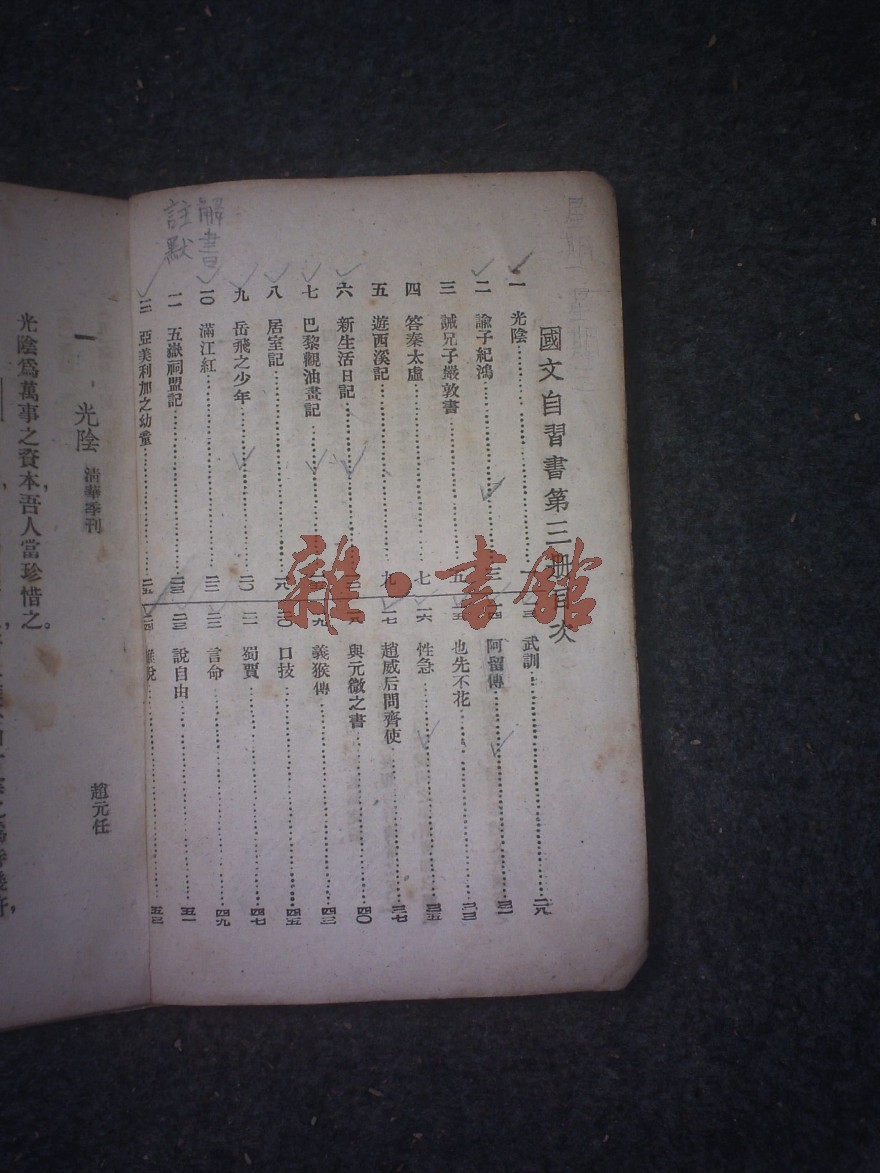 國文自習書第三册目次
一 光陰 一
二 諭子紀鴻 三
三 誡兄子嚴敦書 五
四 答秦太虛 七
五 遊西溪記 九
六 新生活日記
七 巴黎觀油畫記
八 居室記 一九
九 岳飛之少年 二〇
一〇 滿江紅 二二
一一 五嶽祠盟記 二三
一二 亞美利加之幼童 二五
一三 武訓 二九
一四 阿留傳 三一
一五 也先不花 三三
一六 性急 三五
一七 趙威后問齊使 三七
一八 與元微之書 四〇
一九 義猴傳 四三
二〇 口技 四五
二一 蜀賈 四七
二二 言命 四九
二三 說自由 五一
二四 說 五三
解書
註默
雜·書館
一 光陰 清華季刊 趙元任
光陰爲萬事之資本,吾人當珍惜之。